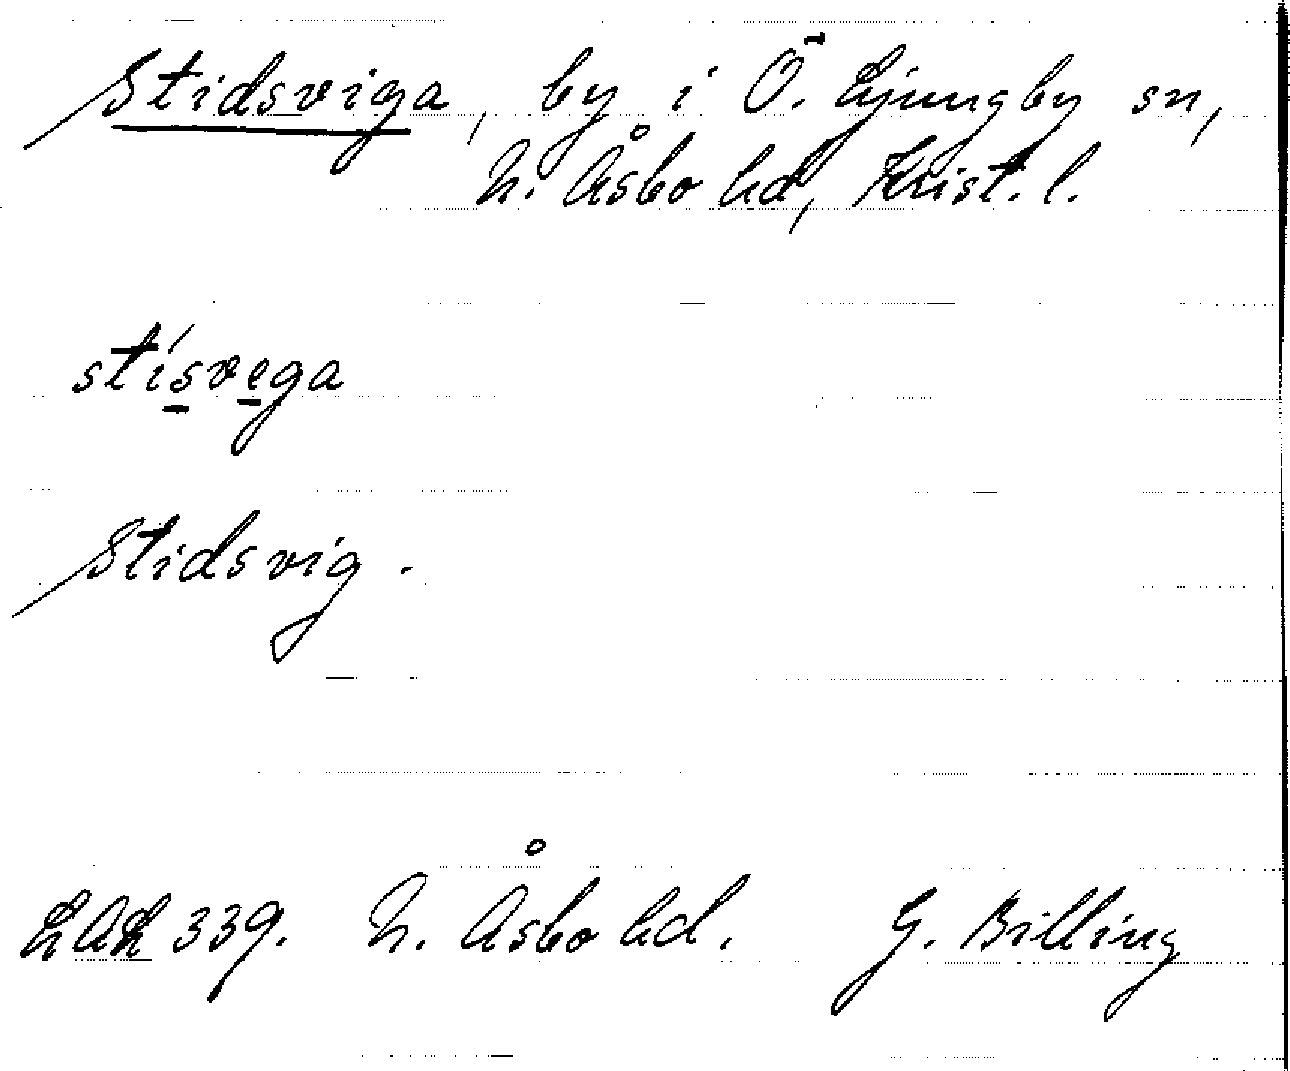 Stidsviga, by i Ö. Ljungby sn,
N. Åsbo hd, Krist. l.
stísvega
Stidsvig.
LAL 339. N. Åsbo hd. G. Billing